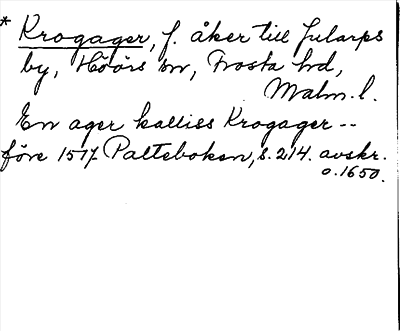 * Krogager, f. åker till Jularps
by, Höörs sn, Frosta hd,
Malm. l.
En ager kalliss Krogager --
före 1517 Palteboken, s. 214. avskr.
o. 1650.